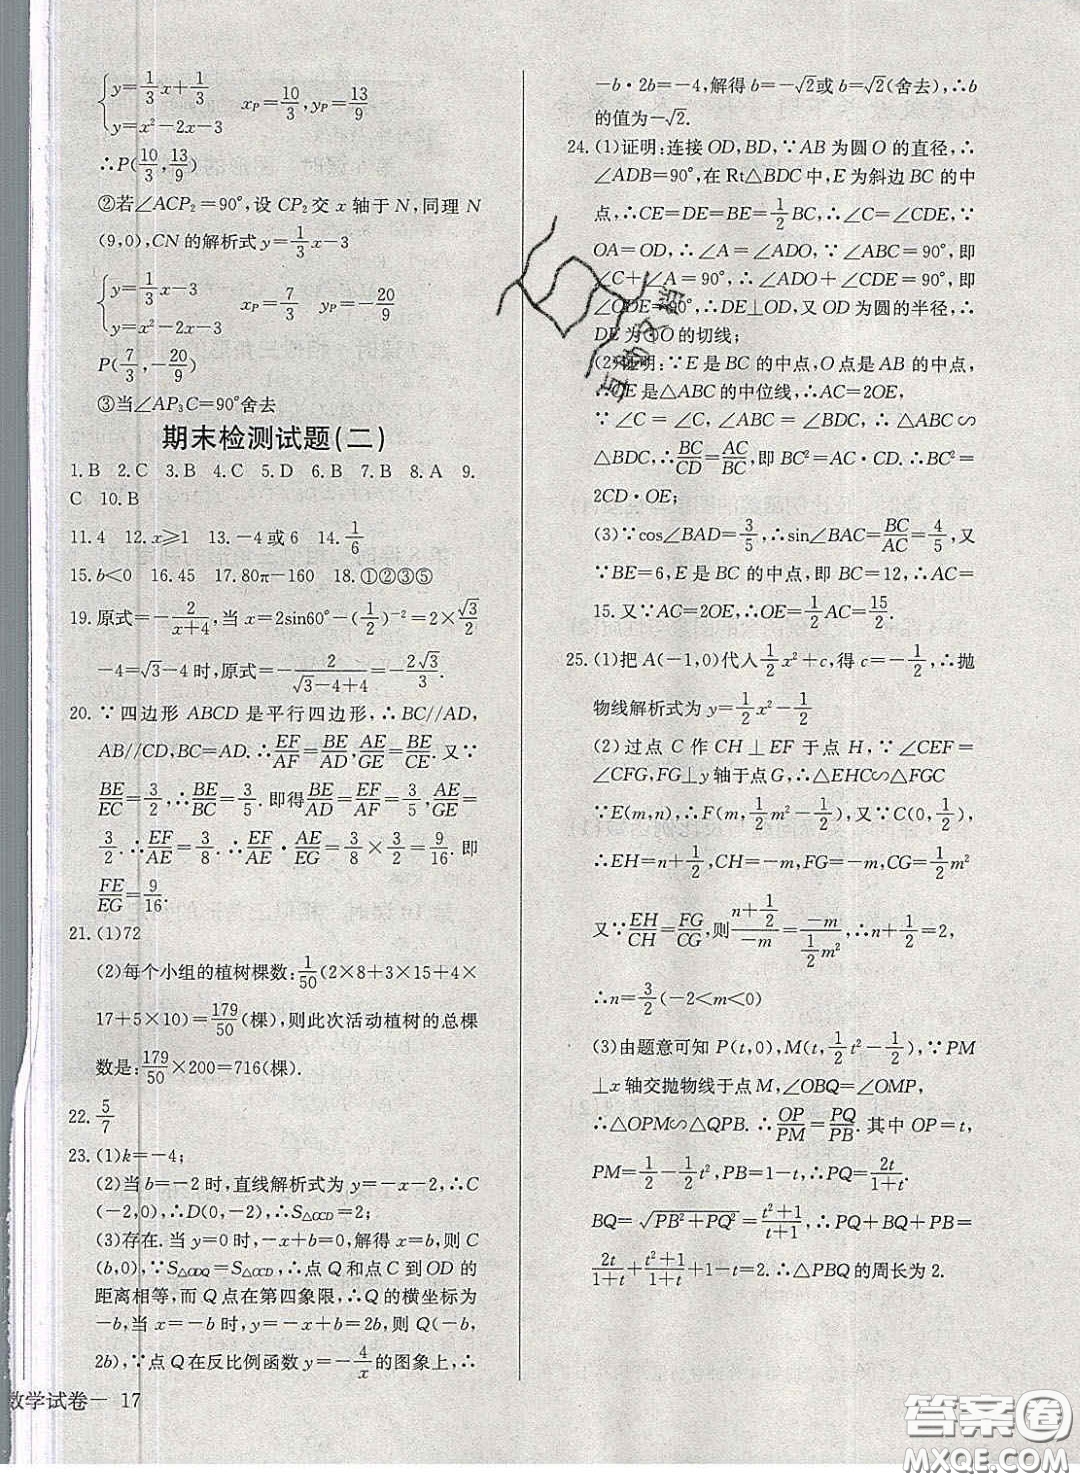 {y=1/3x+1/3
y=x²-2x-3  xP=10/3,yP=13/9
∴P(10/3,13/9)
②若∠ACP₂=90°,设CP₂交x轴于N,同理N
(9,0),CN的解析式y=1/3x-3
{y=1/3x-3
y=x²-2x-3  xP=7/3  yP=-20/9
P(7/3,-20/9)
③当∠AP₃C=90°舍去
期末检测试题(二)
1.B 2.C 3.B 4.C 5.D 6.B 7.B 8.A 9.
C 10.B
11.4 12.x⩾1 13.-4或6 14.1/6
15.b<0 16.45 17.80π-160 18.①②③⑤
19.原式=-2/(x+4),当x=2sin60°-(1/2)⁻²=2×√3/2
-4=√3-4时,原式=-2/(√3-4+4)=-2√3/3.
20.∵四边形ABCD是平行四边形,∴BC//AD,
AB//CD,BC=AD.∴EF/AF=BE/AD,AE/GE=BE/CE.又∵
BE/EC=3/2,∴BE/BC=3/5.即得BE/AD=EF/AF=3/5,AE/GE=
3/2.∴EF/AE=3/8.∴EF/AE·AE/EG=3/8×3/2=9/16.即
FE/EG=9/16.
21.(1)72
(2)每个小组的植树棵数:1/50(2×8+3×15+4×
17+5×10)=179/50(棵),则此次活动植树的总棵
数是:179/50×200=716(棵).
22.5/7
23.(1)k=-4;
(2)当b=-2时,直线解析式为y=-x-2,∴C
(-2,0),∴D(0,-2),∴S△OCD=2;
(3)存在.当y=0时,-x+b=0,解得x=b,则C
(b,0),∵S△ODQ=S△OCD,∴点Q和点C到OD的
距离相等,而Q点在第四象限,∴Q的横坐标为
-b,当x=-b时,y=-x+b=2b,则Q(-b,
2b),∵点Q在反比例函数y=-4/x的图象上,∴
数学试卷— 17
-b·2b=-4,解得b=-√2或b=√2(舍去),∴b
的值为-√2.
24.(1)证明:连接OD,BD,∵AB为圆O的直径,∴
∠ADB=90°,在Rt△BDC中,E为斜边BC的中
点,∴CE=DE=BE=1/2BC,∴∠C=∠CDE,∵
OA=OD,∴∠A=∠ADO,∵∠ABC=90°,即
∠C+∠A=90°,∴∠ADO+∠CDE=90°,即
∠ODE=90°,∴DE⊥OD,又OD为圆的半径,∴
DE为⊙O的切线;
(2)证明:∵E是BC的中点,O点是AB的中点,
∴OE是△ABC的中位线,∴AC=2OE,
∵∠C=∠C,∠ABC=∠BDC,∴△ABC∽
△BDC,∴BC/CD=AC/BC,即BC²=AC·CD.∴BC²=
2CD·OE;
(3)∵cos∠BAD=3/5,∴sin∠BAC=BC/AC=4/5,又
∵BE=6,E是BC的中点,即BC=12,∴AC=
15.又∵AC=2OE,∴OE=1/2AC=15/2.
25.(1)把A(-1,0)代人1/2x²+c,得c=-1/2,∴抛
物线解析式为y=1/2x²-1/2
(2)过点C作CH⊥EF于点H,∵∠CEF=
∠CFG,FG⊥y轴于点G,∴△EHC∽△FGC
∵E(m,n),∴F(m,1/2m²-1/2),又∵C(0,1/2),
∴EH=n+1/2,CH=-m,FG=-m,CG=1/2m²
又∵EH/CH=FG/CG,则(n+1/2)/(-m)=(-m)/(1/2m²),∴n+1/2=2,
∴n=3/2(-2<m<0)
(3)由题意可知P(t,0),M(t,1/2t²-1/2),∵PM
⊥x轴交抛物线于点M,∠OBQ=∠OMP,
∴△OPM∽△QPB.∴OP/PM=PQ/PB.其中OP=t,
PM=1/2-1/2t²,PB=1-t,∴PQ=2t/(1+t).
BQ=√(PB²+PQ²)=(t²+1)/(t+1),∴PQ+BQ+PB=
2t/(1+t)+(t²+1)/(t+1)+1-t=2.∴△PBQ的周长为2.
答案圈
MXQE.COM